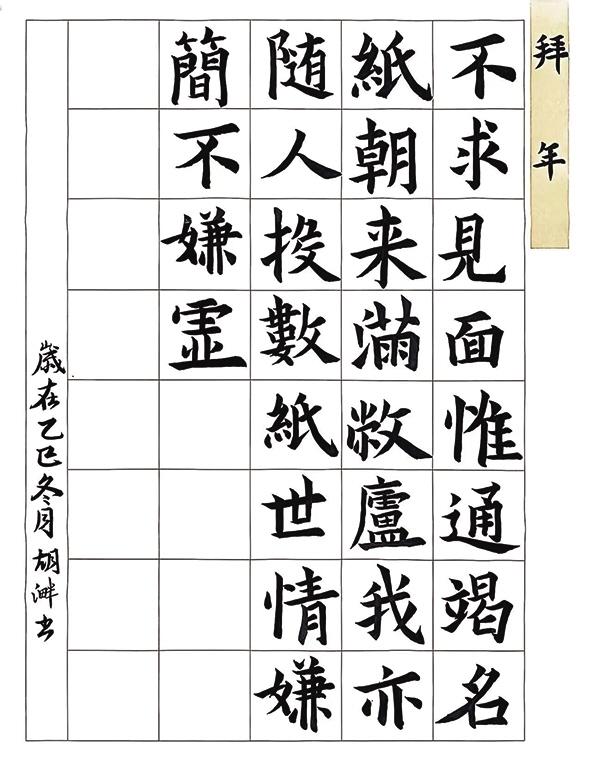 拜年
不求見面惟通竭名
紙朝来滿敝廬我亦
随人投數紙世情嫌
簡不嫌虛
歲在乙巳冬月胡书